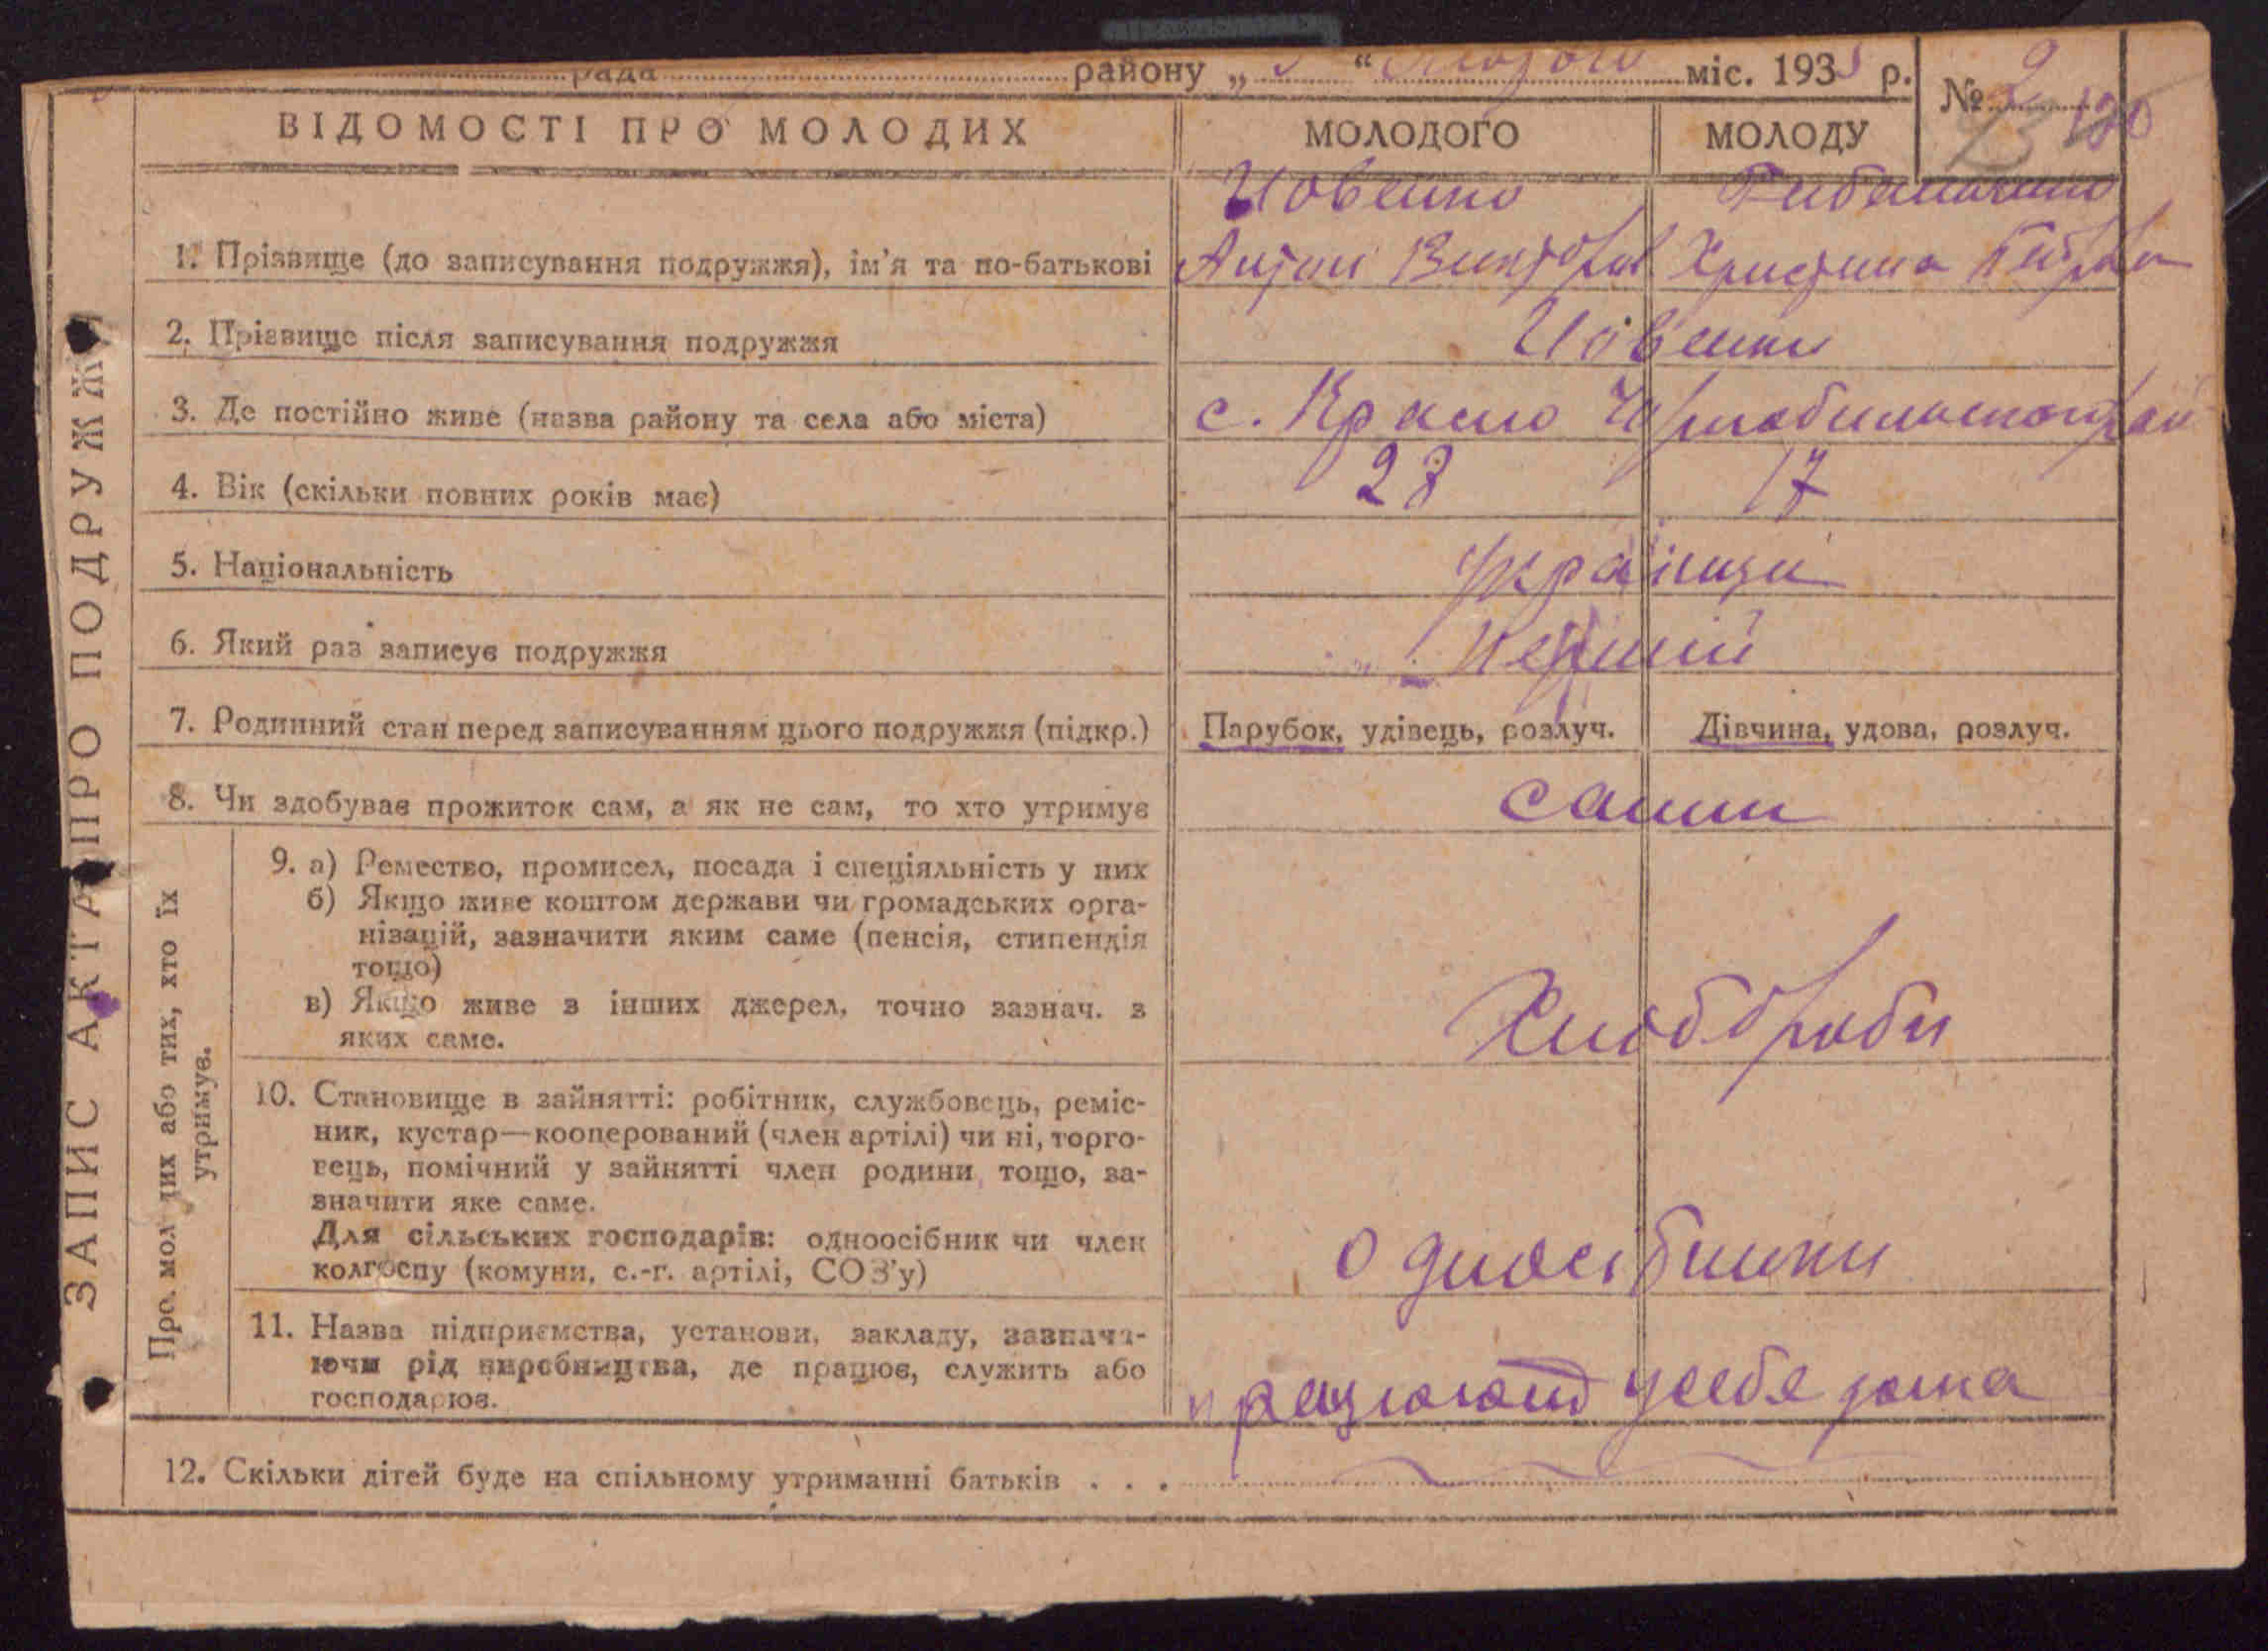 рада району „ “ Лютого міс. 193 р.
№ 2
120
ВІДОМОСТІ ПРО МОЛОДИХ
МОЛОДОГО
МОЛОДУ
1. Прізвище (до записування подружжя), ім'я та по-батькові
Антон Виктбров
Христина
2. Прізвище після записування подружжя
3. Де постійно живе (назва району та села або міста)
с. Красно Чорнобильского рай
4. Вік (скільки повних років має)
17
5. Національність
Українци
6. Який раз записує подружжя
Перший
7. Родинний стан перед записуванням цього подружжя (підкр.)
Парубок, удівець, розлуч.
Дівчина, удова, розлуч.
8. Чи здобуває прожиток сам, а як не сам, то хто утримує
сами
9. а) Ремество, промисел, посада і спеціяльність у них
б) Якщо живе коштом держави чи громадських орга-
нізацій, зазначити яким саме (пенсія, стипендія
тощо)
в) Якщо живе з інших джерел, точно зазнач. з
яких саме.
Хлібороби
10. Становище в зайнятті: робітник, службовець, реміс-
ник, кустар—кооперований (член артілі) чи ні, торго-
вець, помічний у зайнятті член родини тощо, за-
значити яке саме.
Для сільських господарів: одноосібник чи член
колгоспу (комуни, с.-г. артілі, СОЗ'у)
односібники
11. Назва підприємства, установи, закладу, зазнача-
ючи рід виробництва, де працює, служить або
господарює.
працюют у себе дома
12. Скільки дітей буде на спільному утриманні батьків . . .
ЗАПИС АКТА ПРО ПОДРУЖЖЯ
Про молодих або тих, хто їх
утримує.